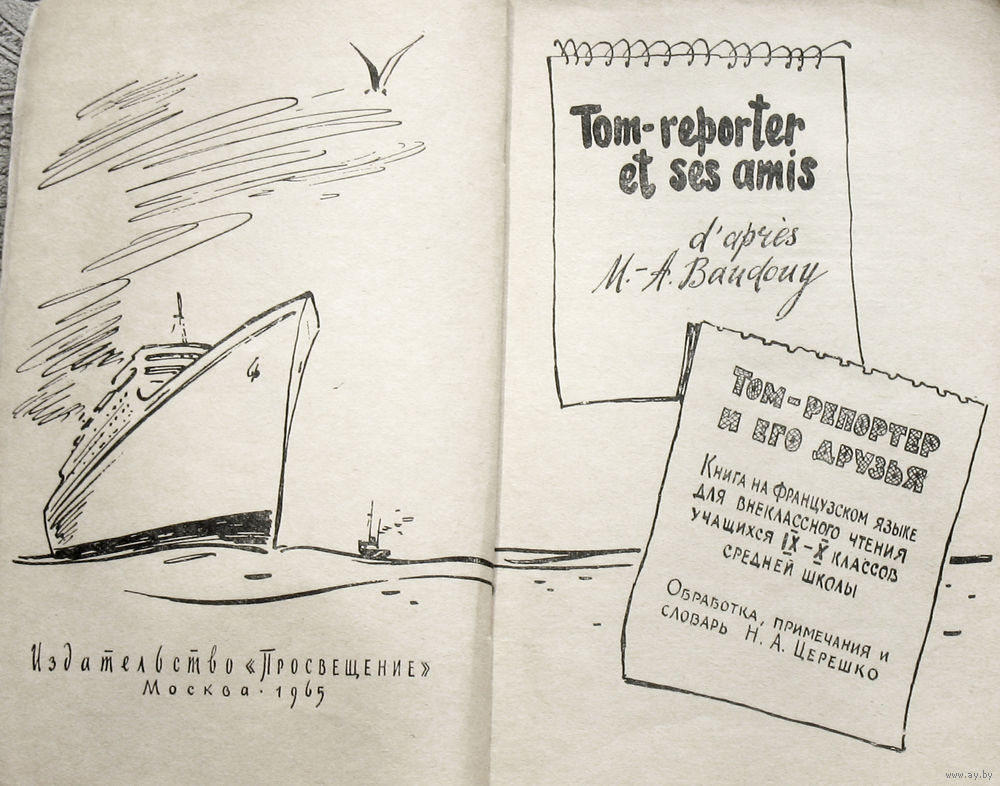 Издательство «Просвещение»
Москва · 1965
Tom-reporter
et ses amis
d'après
M.-A. Baudouy
Том-репортер
и его друзья
Книга на французском языке
для внеклассного чтения
учащихся IX–X классов
средней школы
Обработка, примечания и
словарь Н. А. Церешко
www.ay.by